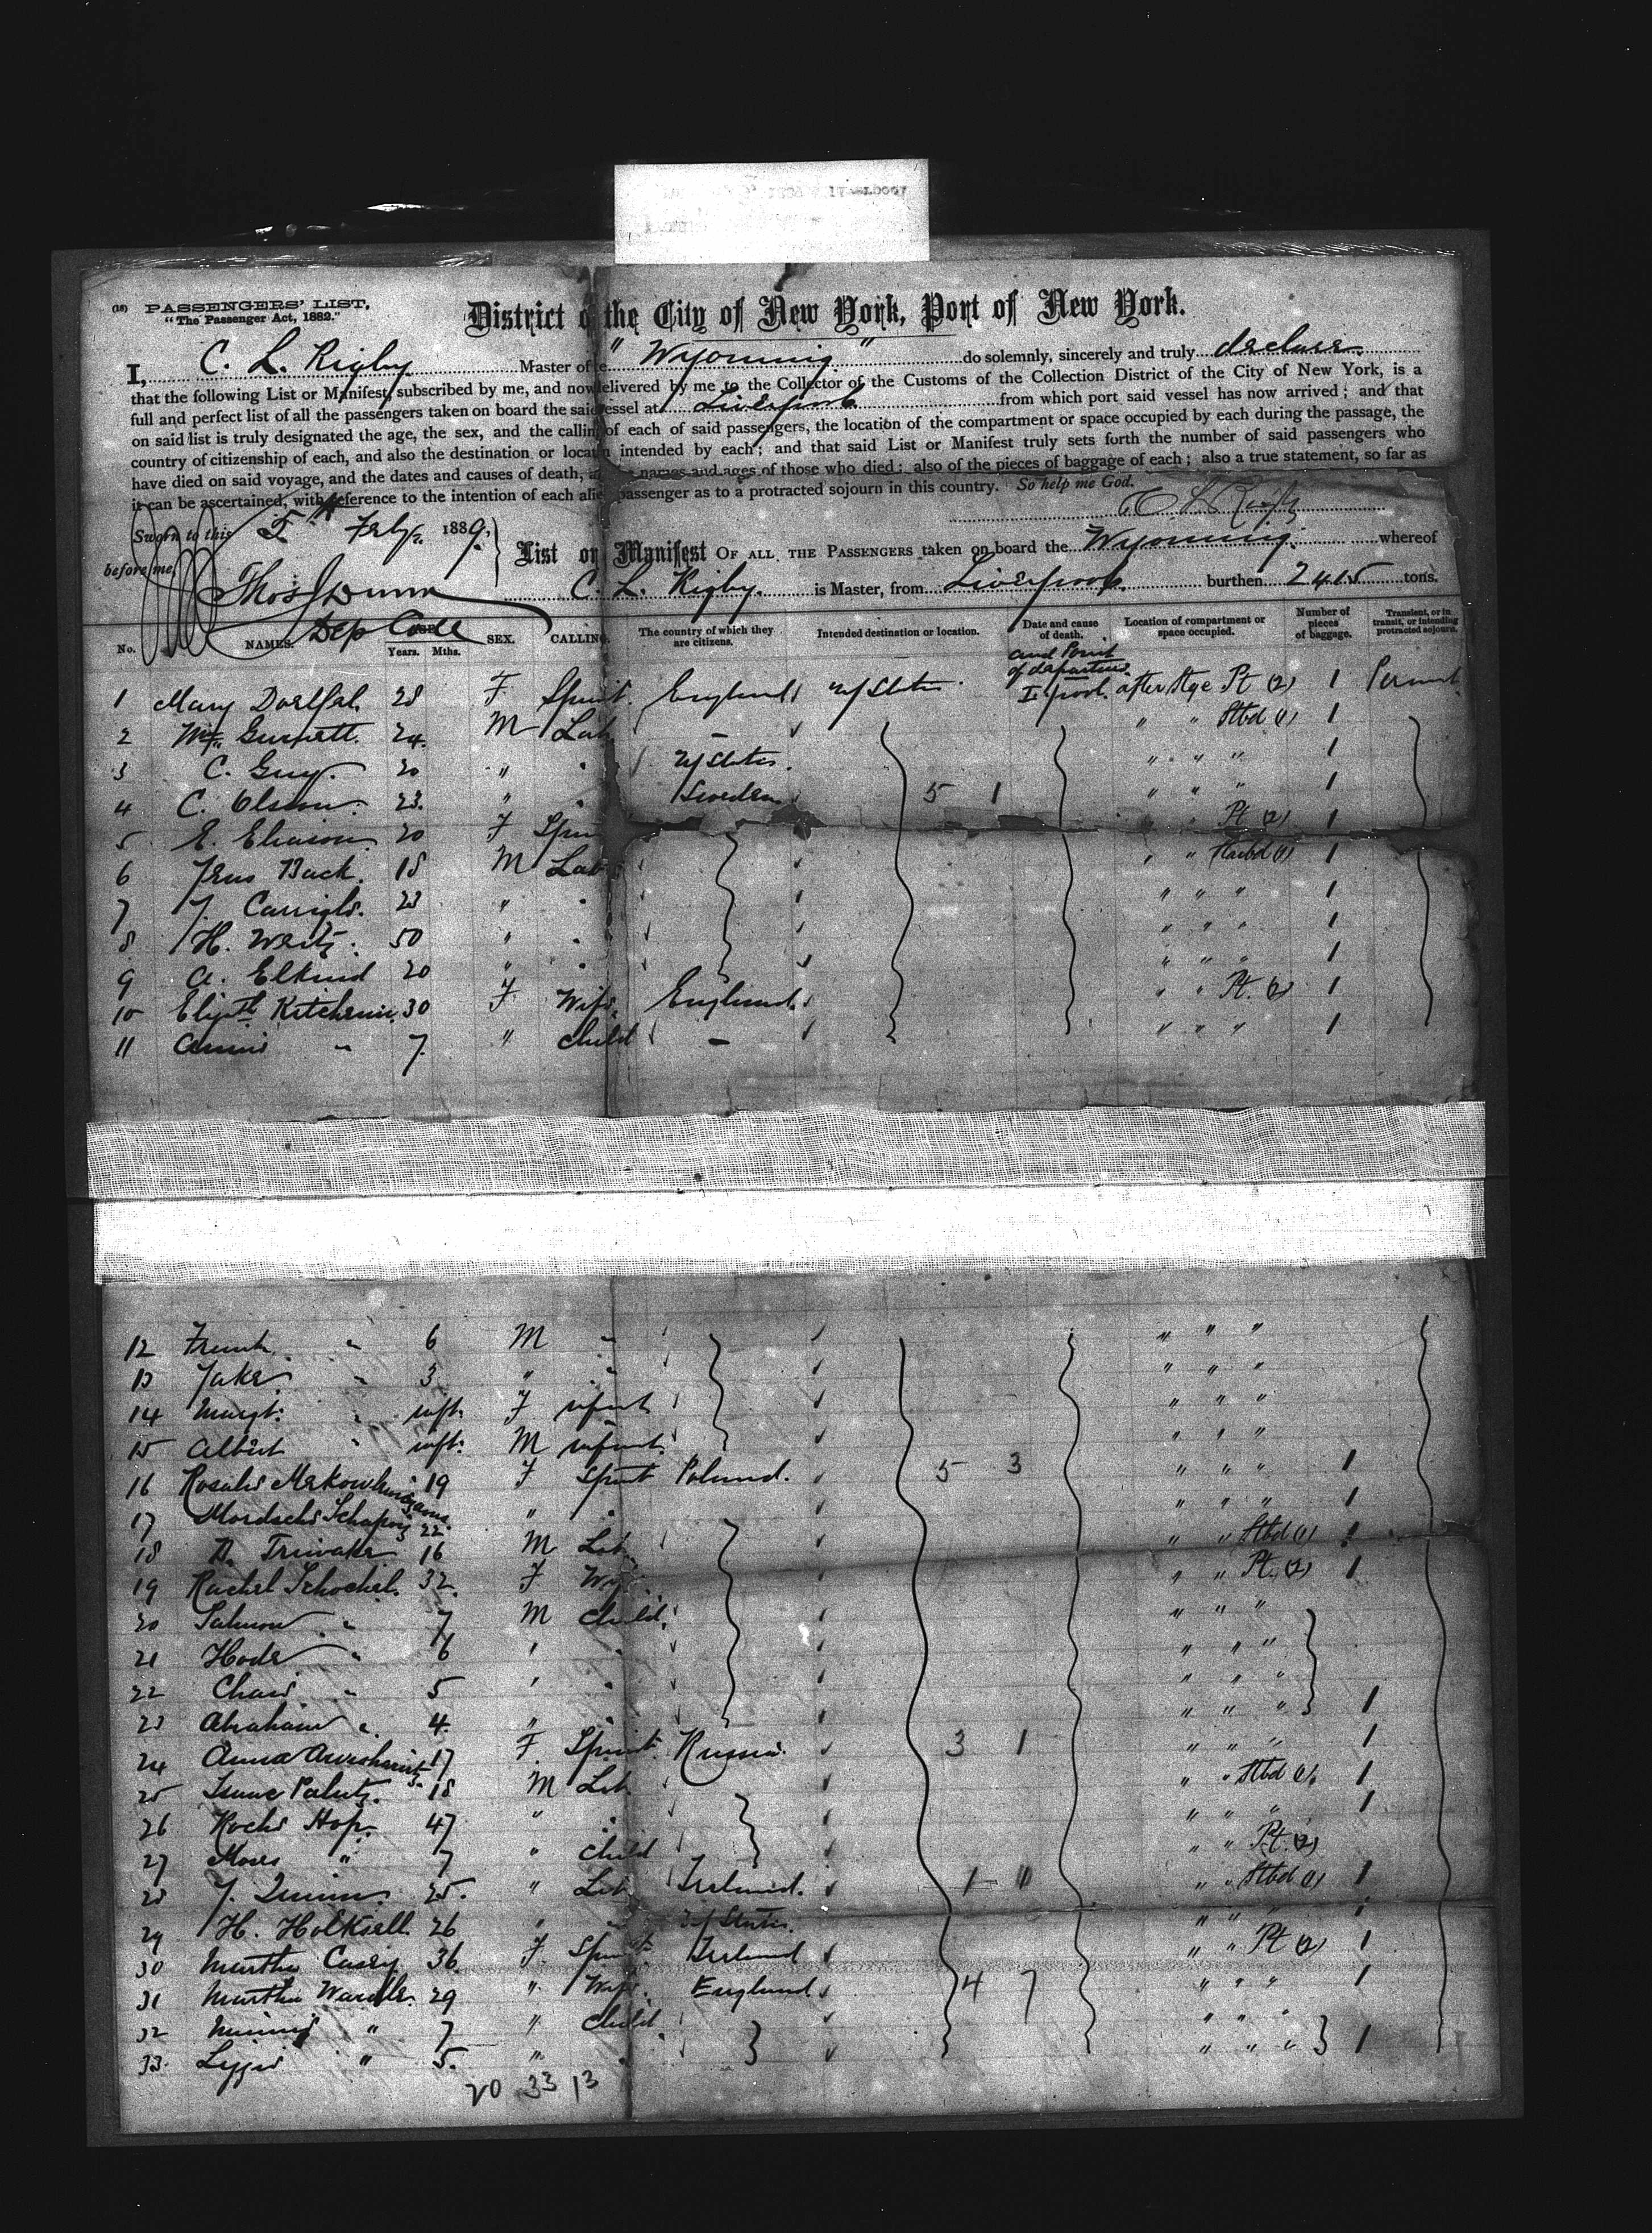 (18) PASSENGERS' LIST.
"The Passenger Act, 1882."
District o the City of New York, Port of New York.
I, C. L. Rigby Master of e "Wyoming" do solemnly, sincerely and truly declare
that the following List or Manifest, subscribed by me, and now delivered by me to the Collector of the Customs of the Collection District of the City of New York, is a
full and perfect list of all the passengers taken on board the said essel at Liverpool from which port said vessel has now arrived; and that
on said list is truly designated the age, the sex, and the callin of each of said passengers, the location of the compartment or space occupied by each during the passage, the
country of citizenship of each, and also the destination or locat n intended by each; and that said List or Manifest truly sets forth the number of said passengers who
have died on said voyage, and the dates and causes of death, a names and ages of those who died; also of the pieces of baggage of each; also a true statement, so far as
it can be ascertained, with reference to the intention of each alie passenger as to a protracted sojourn in this country. So help me God.
C L Rigby
Sworn to this 5th Feby. 1889.
before me,
Thos J Dunn
Dep
List or Manifest OF ALL THE PASSENGERS taken on board the Wyoming whereof
C. L. Rigby. is Master, from Liverpool burthen 2415 tons.
No. NAMES. Years. Mths. SEX. CALLING The country of which they are citizens. Intended destination or location. Date and cause of death. Location of compartment or space occupied. Number of pieces of baggage. Transient, or in transit, or intending protracted sojourn.
and Point of departure
1 Mary 28 F Spinst. England U/States L'pool. after Stge Pt (2) 1 Permt.
2 Gurnett. 24. M Lab " " Stbd (1) 1
3 C. Guy. 20 " " U/States. " " " 1
4 C. Olsson 23. " " Sweden 5 1 " " " 1
5 E. Eliason 20 F Spin " " Pt (2) 1
6 Jens Back. 18 M Lab " " Starbd (1) 1
7 J. 23 " " " " " 1
8 H. 50 " " " " " 1
9 A. Elkind 20 " " " " " 1
10 Elizth Kitchenin 30 F Wife England " " Pt. (2) 1
11 Annie " 7. " Child " " " 1
12 Frank " 6 M " " " "
13 Jake " 3 " " " " "
14 Margt. " inft. F infant " " "
15 Albert " inft. M infant " " "
16 Rosalie 19 F Spinst Poland. 5 3 " " " 1
17 22 " " " " " 1
18 16 M Lab " " Stbd (1) 1
19 Rachel Schochet. 32. F Wife " " Pt. (2) 1
20 Salmon " 7 M Child " " "
21 Hode " 6 " " " " "
22 " 5 " " " " "
23 Abraham " 4. " " " " " 1
24 Anna 17 F. Spinst. Russia. 3 1 " " " 1
25 Isaac 18 M Lab " " Stbd (1). 1
26 Hop. 47 " " " " " 1
27 Moses " 7 " Child " " Pt. (2)
28 J. Quinn 25. " Lab Ireland. 1 11 " " Stbd (1) 1
29 H. 26 " " U/States. " " " 1
30 Martha Casey 36. F. Spinst Ireland " " Pt (2) 1
31 Martha Wardle. 29 " Wife. England 4 7 " " " 1
32 " 7 " Child " " "
33. Lizzie " 5. " " " " " 1
20 33 13